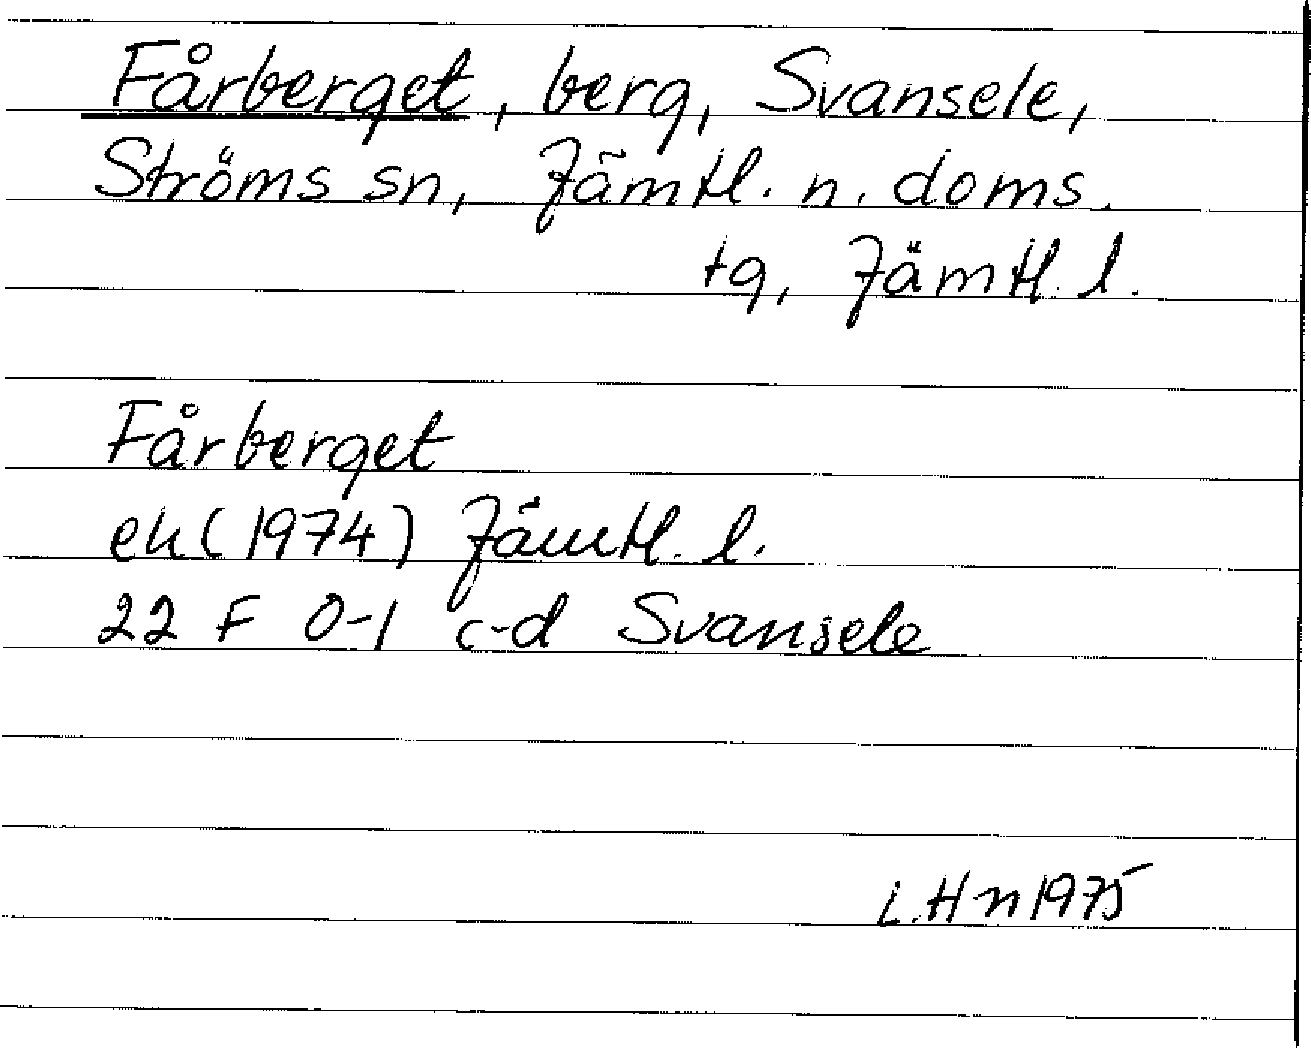 Fårberget, berg, Svansele,
Ströms sn, Jämtl. n. doms.
tg, Jämtl. l.
Fårberget
ek (1974) Jämtl. l.
22 F 0-1 c-d Svansele
L.Hn 1975